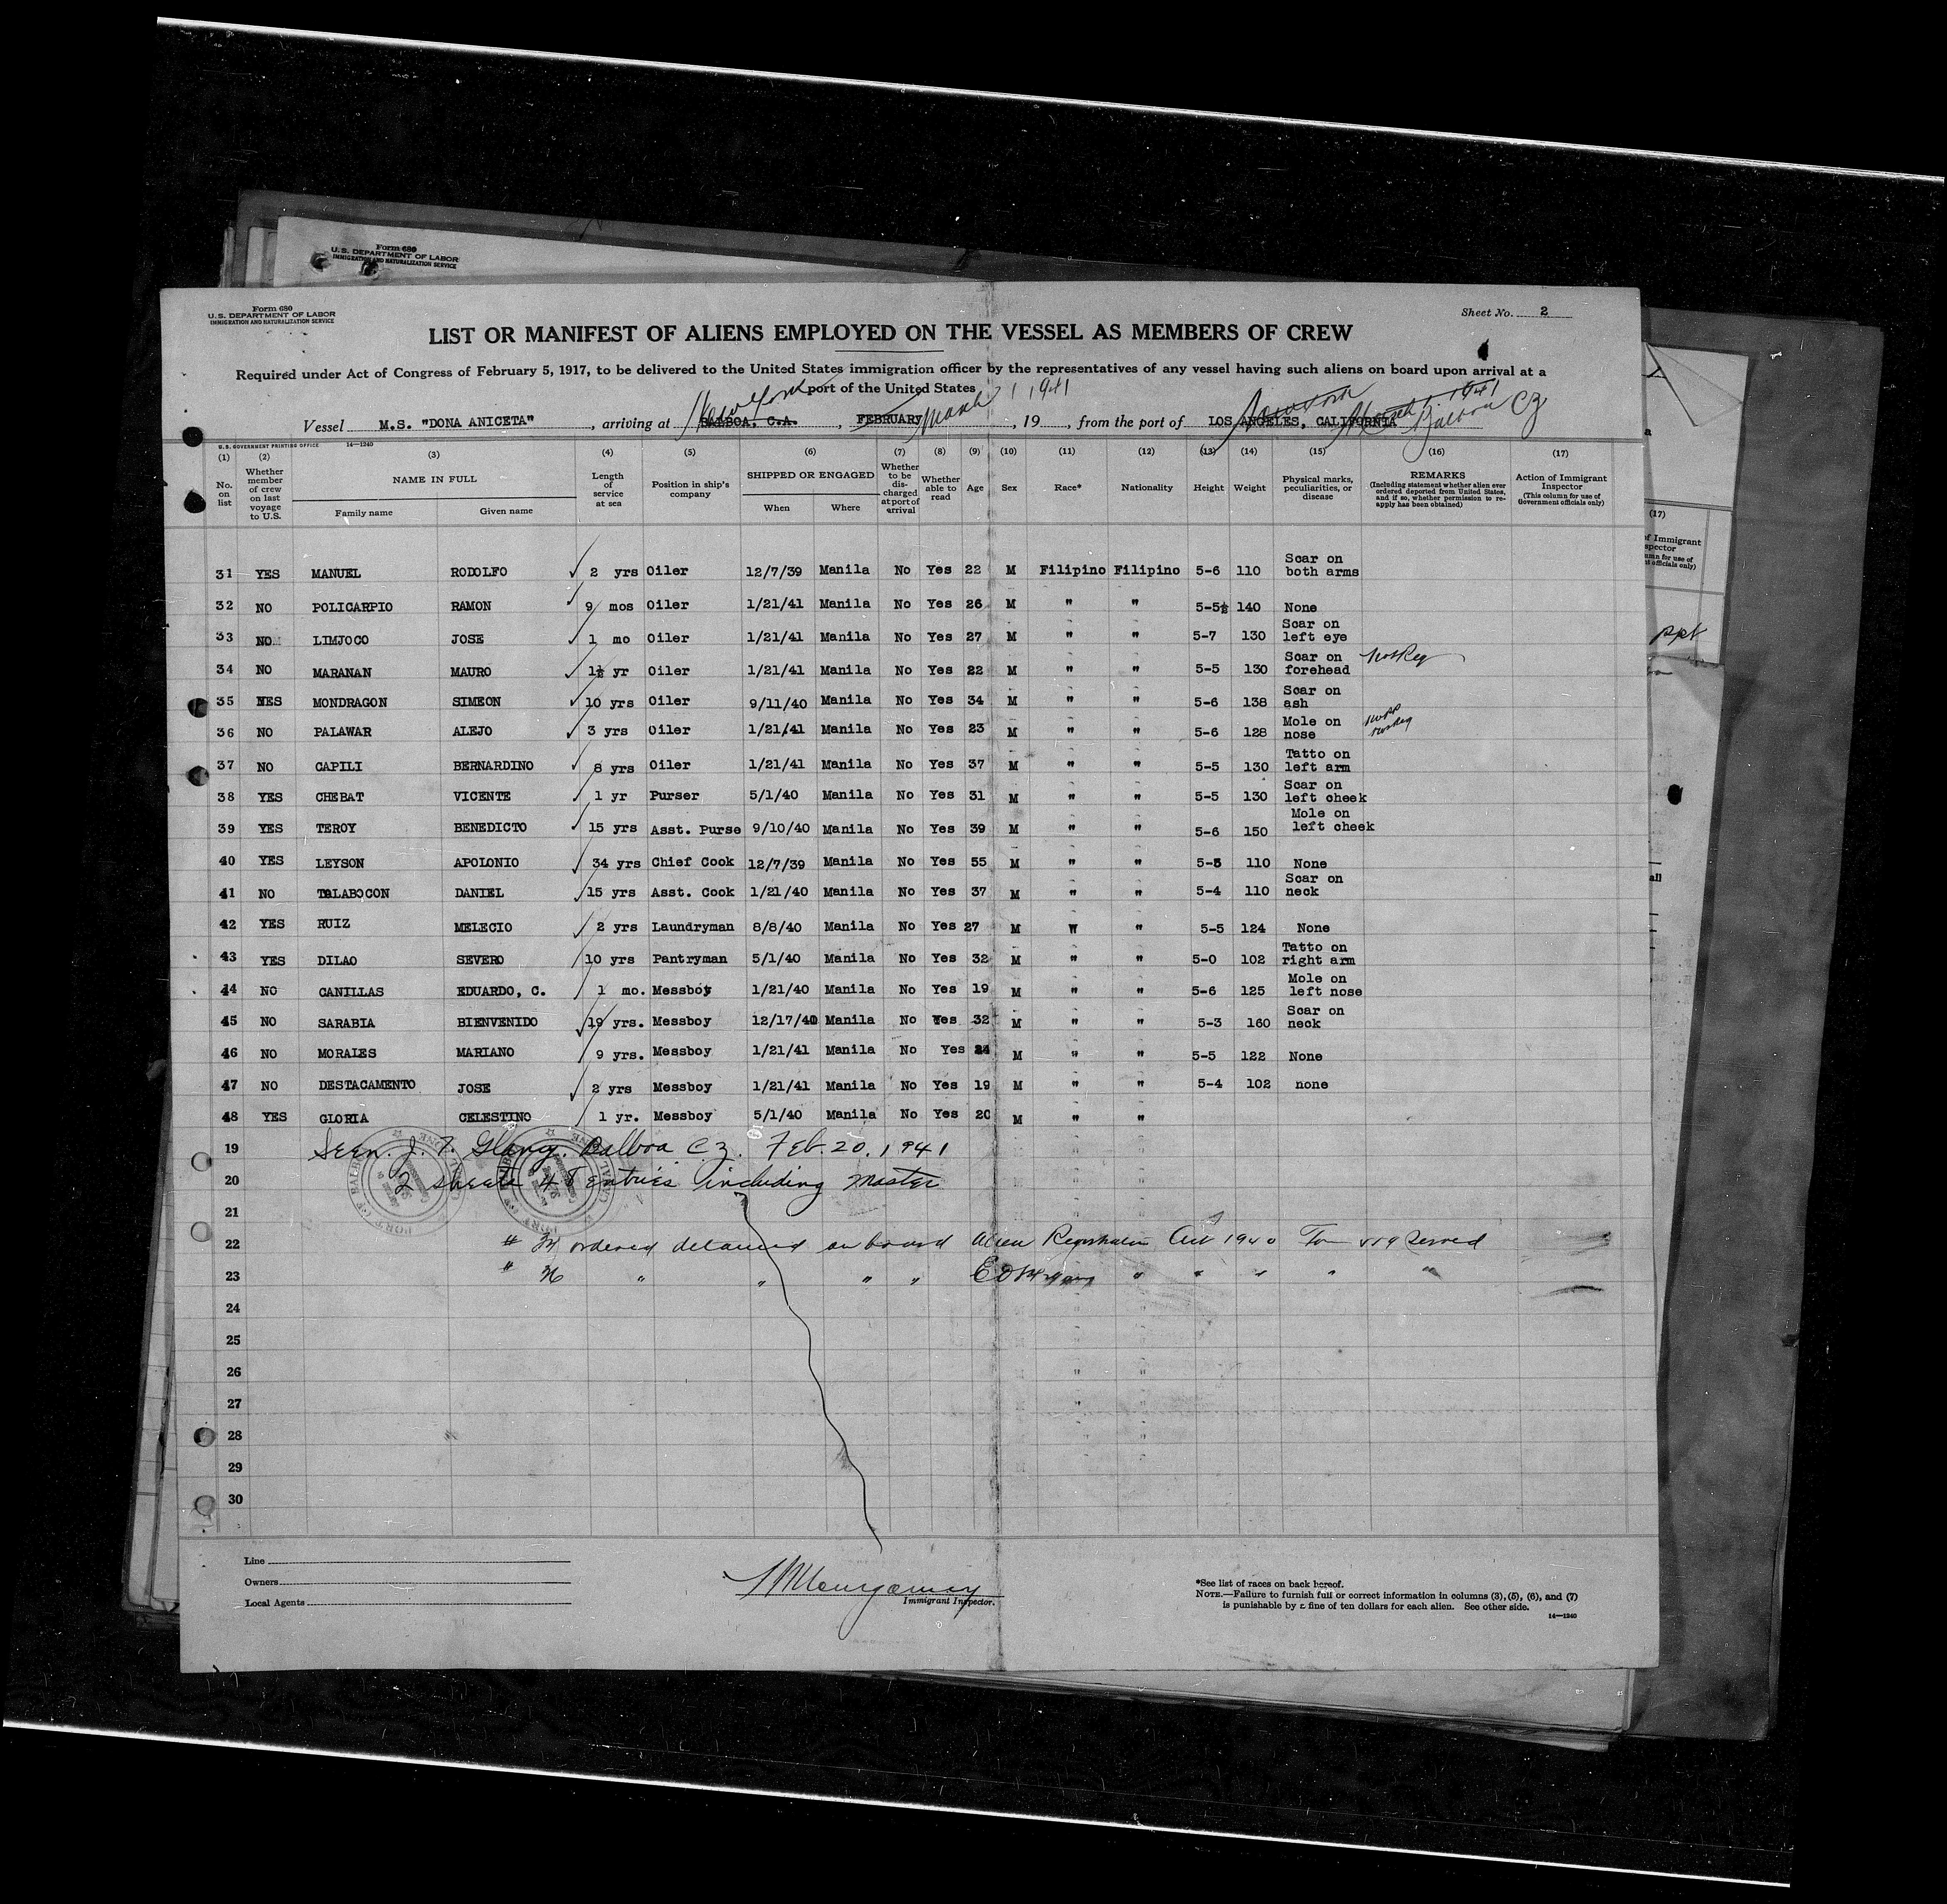 Form 680
U. S. DEPARTMENT OF LABOR
IMMIGRATION AND NATURALIZATION SERVICE
Form 680
U. S. DEPARTMENT OF LABOR
IMMIGRATION AND NATURALIZATION SERVICE
Sheet No. 2
LIST OR MANIFEST OF ALIENS EMPLOYED ON THE VESSEL AS MEMBERS OF CREW
Required under Act of Congress of February 5, 1917, to be delivered to the United States immigration officer by the representatives of any vessel having such aliens on board upon arrival at a
port of the United States
New York March 1 1941 New York March 1, 1941 Balboa CZ
Vessel M.S. "DONA ANICETA", arriving at BALBOA. C.A., FEBRUARY, 19, from the port of LOS ANGELES, CALIFORNIA
U. S. GOVERNMENT PRINTING OFFICE 14—1240
(1) (2) (3) (4) (5) (6) (7) (8) (9) (10) (11) (12) (13) (14) (15) (16) (17)
No. on list Whether member of crew on last voyage to U.S. NAME IN FULL Family name Given name Length of service at sea Position in ship's company SHIPPED OR ENGAGED When Where Whether to be discharged at port of arrival Whether able to read Age Sex Race* Nationality Height Weight Physical marks, peculiarities, or disease REMARKS (Including statement whether alien ever ordered deported from United States, and if so, whether permission to reapply has been obtained) Action of Immigrant Inspector (This column for use of Government officials only)
31 YES MANUEL RODOLFO 2 yrs Oiler 12/7/39 Manila No Yes 22 M Filipino Filipino 5-6 110 Scar on both arms
32 NO POLICARPIO RAMON 9 mos Oiler 1/21/41 Manila No Yes 26 M " " 5-5½ 140 None
33 NO LIMJOCO JOSE 1 mo Oiler 1/21/41 Manila No Yes 27 M " " 5-7 130 Scar on left eye
34 NO MARANAN MAURO 1½ yr Oiler 1/21/41 Manila No Yes 22 M " " 5-5 130 Scar on forehead Not Reg
35 YES MONDRAGON SIMEON 10 yrs Oiler 9/11/40 Manila No Yes 34 M " " 5-6 138 Scar on ash
36 NO PALAWAR ALEJO 3 yrs Oiler 1/21/41 Manila No Yes 23 M " " 5-6 128 Mole on nose No PP Not Reg
37 NO CAPILI BERNARDINO 8 yrs Oiler 1/21/41 Manila No Yes 37 M " " 5-5 130 Tatto on left arm
38 YES CHEBAT VICENTE 1 yr Purser 5/1/40 Manila No Yes 31 M " " 5-5 130 Scar on left cheek
39 YES TEROY BENEDICTO 15 yrs Asst. Purse 9/10/40 Manila No Yes 39 M " " 5-6 150 Mole on left cheek
40 YES LEYSON APOLONIO 34 yrs Chief Cook 12/7/39 Manila No Yes 55 M " " 5-5 110 None
41 NO TALABOCON DANIEL 15 yrs Asst. Cook 1/21/40 Manila No Yes 37 M " " 5-4 110 Scar on neck
42 YES RUIZ MELECIO 2 yrs Laundryman 8/8/40 Manila No Yes 27 M " " 5-5 124 None
43 YES DILAO SEVERO 10 yrs Pantryman 5/1/40 Manila No Yes 32 M " " 5-0 102 Tatto on right arm
44 NO CANILLAS EDUARDO, C. 1 mo. Messboy 1/21/40 Manila No Yes 19 M " " 5-6 125 Mole on left nose
45 NO SARABIA BIENVENIDO 19 yrs. Messboy 12/17/40 Manila No Yes 32 M " " 5-3 160 Scar on neck
46 NO MORALES MARIANO 9 yrs. Messboy 1/21/41 Manila No Yes 24 M " " 5-5 122 None
47 NO DESTACAMENTO JOSE 2 yrs Messboy 1/21/41 Manila No Yes 19 M " " 5-4 102 none
48 YES GLORIA CELESTINO 1 yr. Messboy 5/1/40 Manila No Yes 20 M " "
19 Seen. J. F. Balboa C.Z. Feb. 20, 1941
20 2 sheets 48 entries including master
21
22 # 34 ordered detained on board Alien Registration Act 1940 served
23 " 36 " " " " " " " " "
24
25
26
27
28
29
30
Line
Owners
Local Agents
Montgomery
Immigrant Inspector.
*See list of races on back hereof.
NOTE.—Failure to furnish full or correct information in columns (3), (5), (6), and (7)
is punishable by a fine of ten dollars for each alien. See other side.
14—1240
(17)
of Immigrant